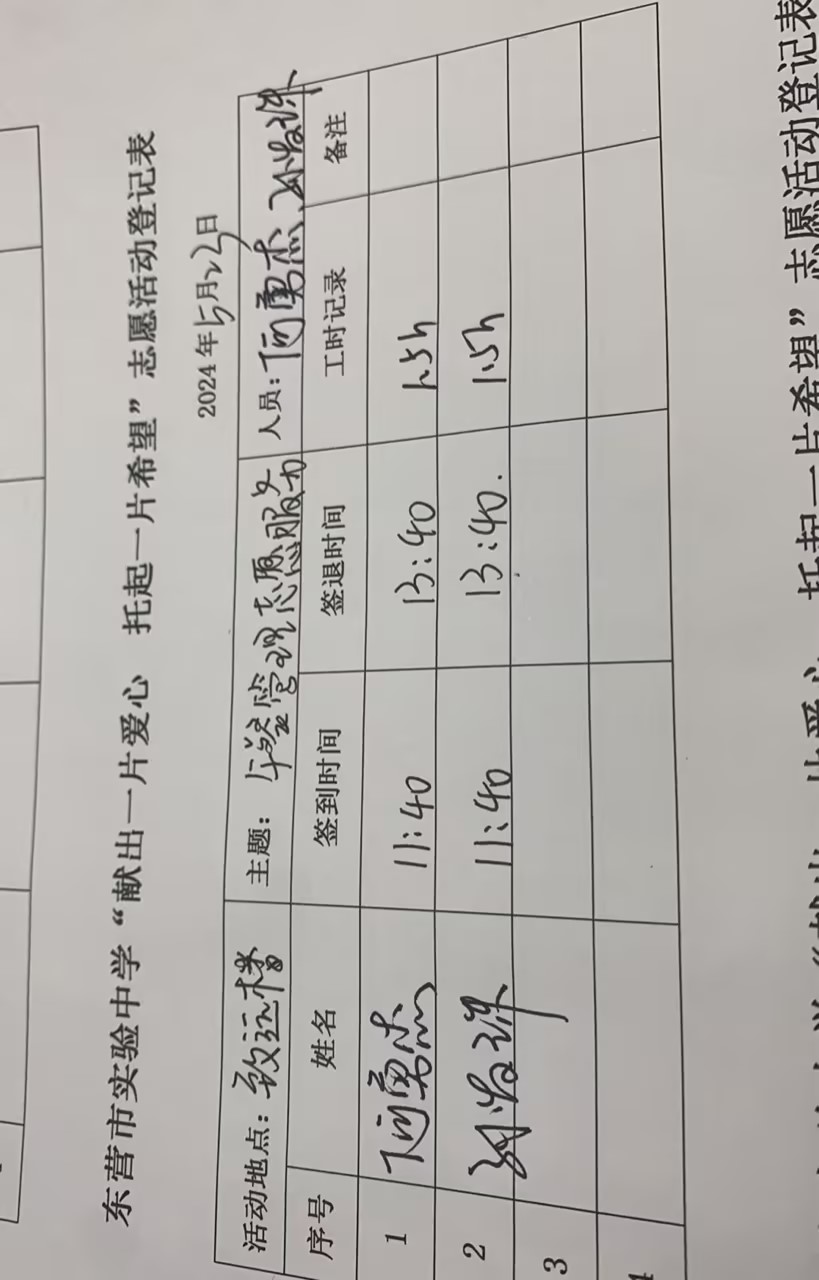 东营市实验中学“献出一片爱心 托起一片希望”志愿活动登记表
2024年5月23日
活动地点：致远楼 主题：午餐管理志愿服务 人员：何勇杰、
序号 姓名 签到时间 签退时间 工时记录 备注
1 何勇杰 11:40 13:40 1.5h
2 11:40 13:40. 1.5h
3
4
志愿活动登记表
托起一片希望”